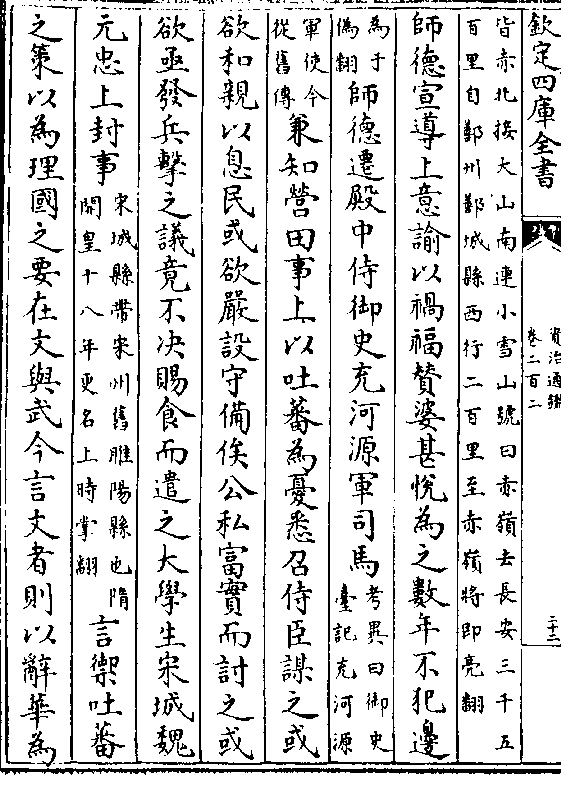 欽定四庫全書
資治通鑑
卷二百二
三十三
皆赤北接大山南連小雪山號曰赤嶺去長安三千五
百里自鄯州鄯城縣西行二百里至赤嶺將即亮翻
師德宣導上意諭以禍福贊婆甚悅為之數年不犯邊
為于
偽翻
師德遷殿中侍御史充河源軍司馬
考異曰御史
臺記充河源
軍使今
從舊傳
兼知營田事上以吐蕃為憂悉召侍臣謀之或
欲和親以息民或欲嚴設守備俟公私富實而討之或
欲亟發兵擊之議竟不決賜食而遣之大學生宋城魏
元忠上封事
宋城縣帶宋州舊睢陽縣也隋
開皇十八年更名上時掌翻
言禦吐蕃
之策以為理國之要在文與武今言文者則以辭華為